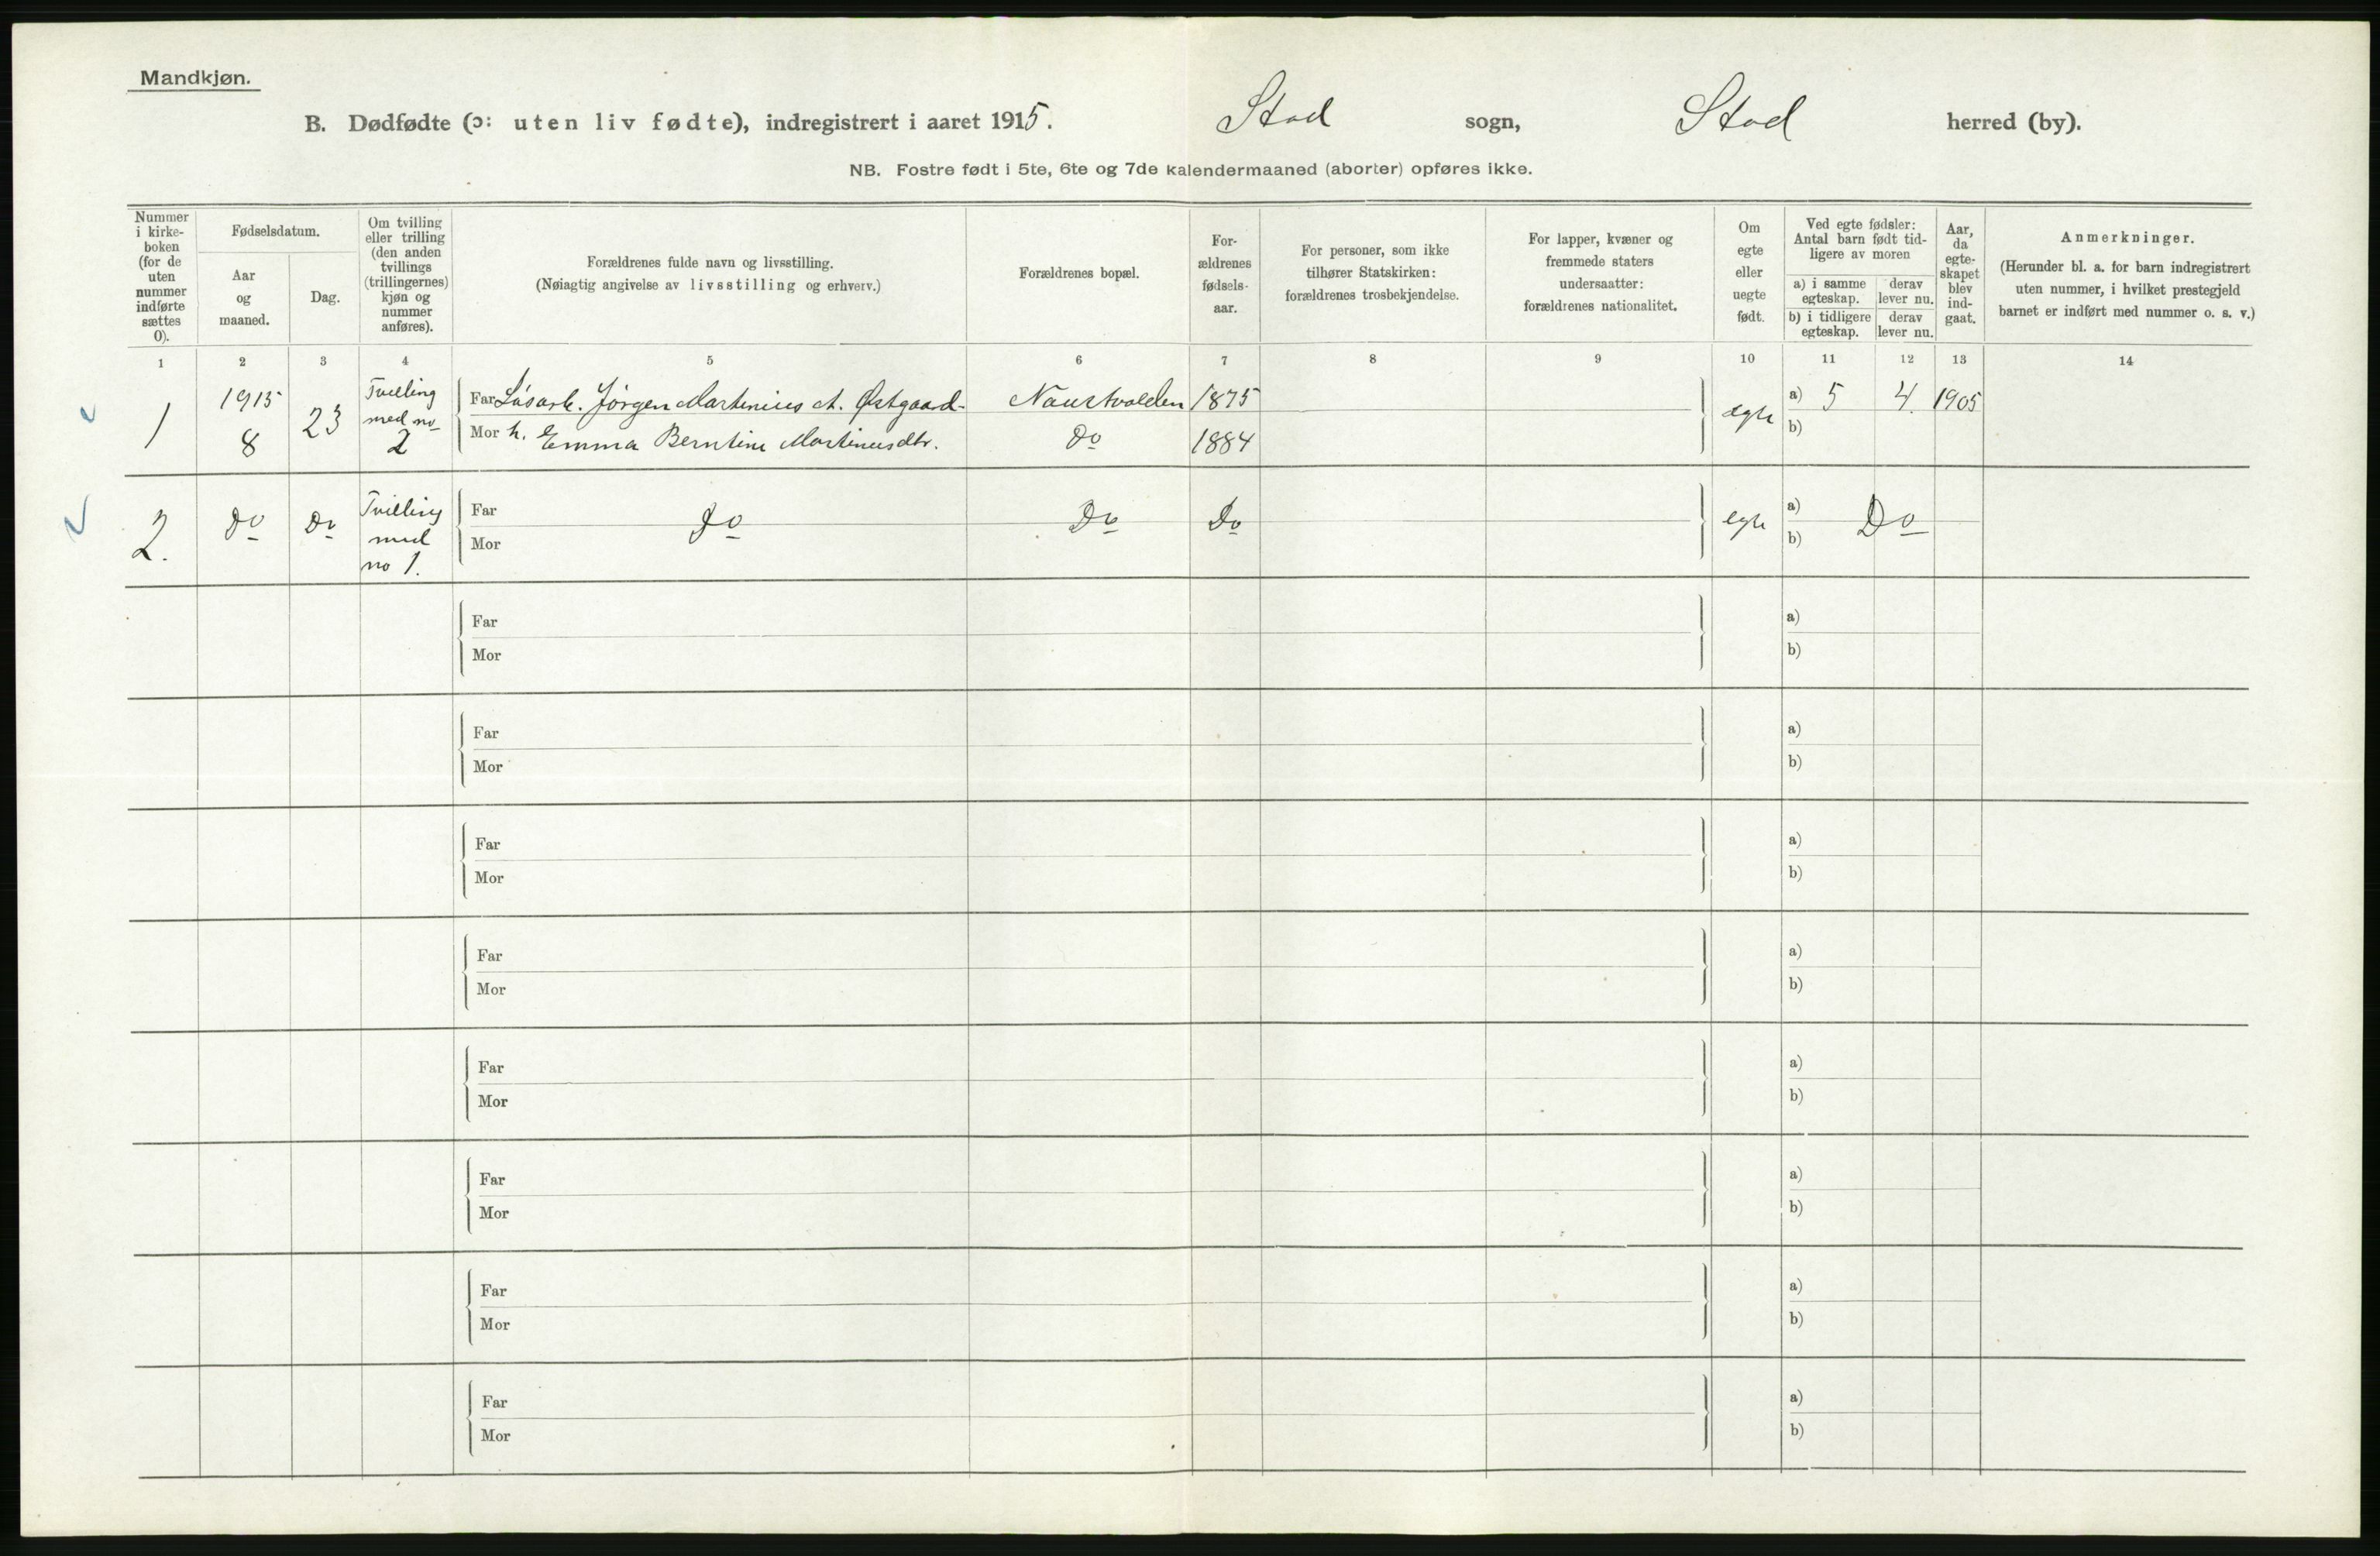 Mandkjøn.
B. Dødfødte (ɔ: uten liv fødte), indregistrert i aaret 1915. Stod sogn, Stod herred (by).
NB. Fostre født i 5te, 6te og 7de kalendermaaned (aborter) opføres ikke.
Nummer
i kirke-
boken
(for de
uten
nummer
indførte
sættes
0).
Fødselsdatum.
Aar
og
maaned.
Dag.
Om tvilling
eller trilling
(den anden
tvillings
(trillingernes)
kjøn og
nummer
anføres).
Forældrenes fulde navn og livsstilling.
(Nøiagtig angivelse av livsstilling og erhverv.)
Forældrenes bopæl.
For-
ældrenes
fødsels-
aar.
For personer, som ikke
tilhører Statskirken:
forældrenes trosbekjendelse.
For lapper, kvæner og
fremmede staters
undersaatter:
forældrenes nationalitet.
Om
egte
eller
uegte
født.
Ved egte fødsler:
Antal barn født tid-
ligere av moren
a) i samme
egteskap.
derav
lever nu.
b) i tidligere
egteskap.
derav
lever nu.
Aar,
da
egte-
skapet
blev
ind-
gaat.
Anmerkninger.
(Herunder bl. a. for barn indregistrert
uten nummer, i hvilket prestegjeld
barnet er indført med nummer o. s. v.)
1 2 3 4 5 6 7 8 9 10 11 12 13 14
1
1915
8
23
Tvilling
med no
2
Far Løsarb. Jørgen Martinius A. Østgaard
Mor h. Emma Berntine Martinusdtr.
Naustvolden
Do
1875
1884
egte
a) 5 4. 1905
b)
2.
Do
Do
Tvilling
med
no 1.
Far
Do
Mor
Do
Do
egte
a)
Do
b)
Far a)
Mor b)
Far a)
Mor b)
Far a)
Mor b)
Far a)
Mor b)
Far a)
Mor b)
Far a)
Mor b)
Far a)
Mor b)
Far a)
Mor b)